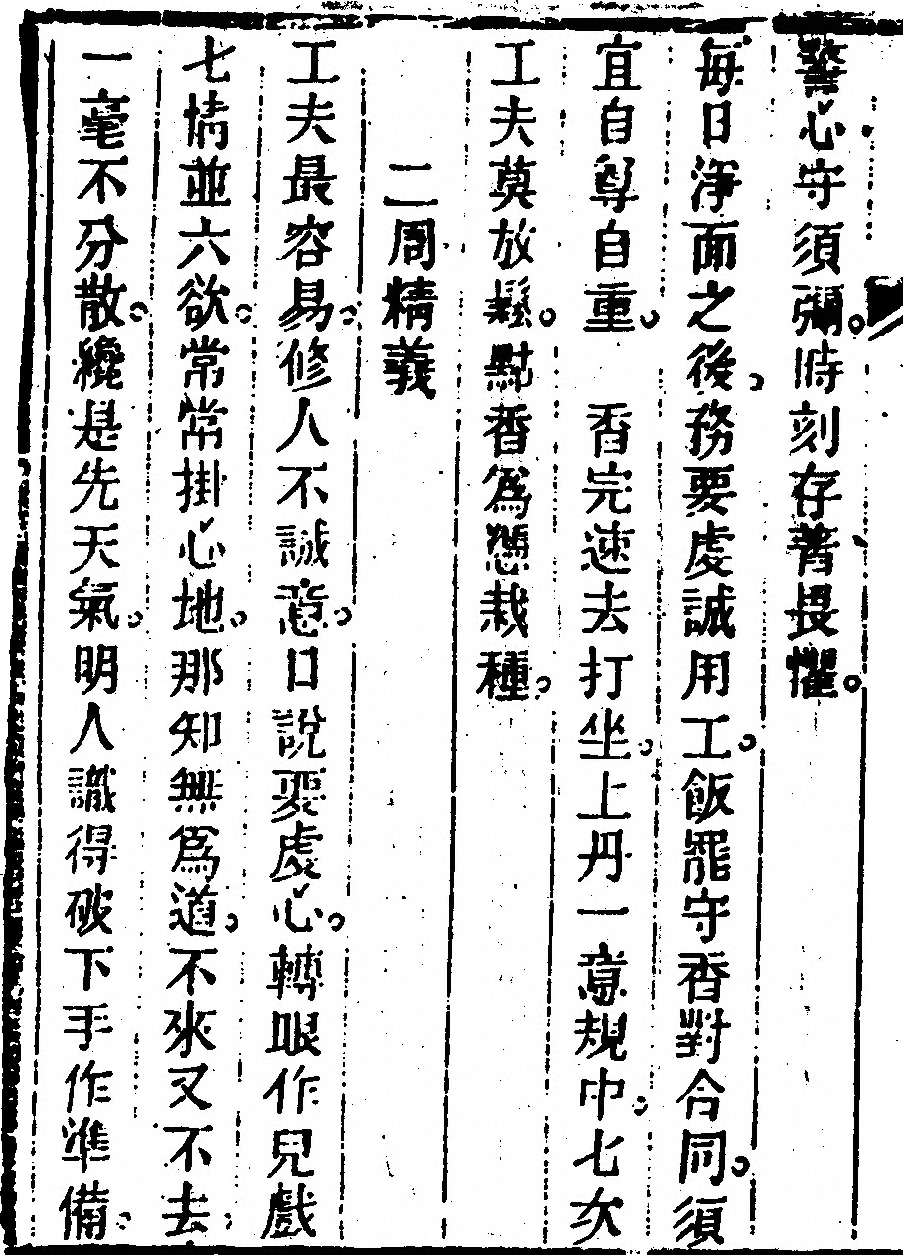 驚心守須彌。時刻存普畏懼。
每日淨面之後。務要虔誠用工。飯罷守香對合同。須
宜自尊自重。　香完速去打坐。上丹一意規中。七次
工夫莫放鬆。點香爲憑栽種。
二周精義
工夫最容易。修人不誠意。口說要虔心。轉眼作兒戲
七情並六欲。常常掛心地。那知無爲道。不來又不去。
一毫不分散。纔是先天氣。明人識得破下手作準備。